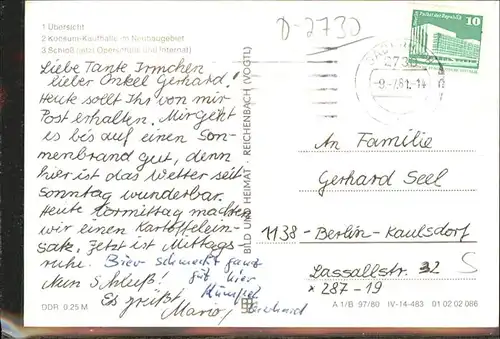 1 Übersicht
2 Konsum-Kaufhalle im Neubaugebiet
3 Schloß (jetzt Oberschule und Internat)
D-2730
10
2730
-9.-7.81.-14
Liebe Tante Irmchen
lieber Onkel Gerhard!
Heute sollt Ihr von mir
Post erhalten. Mir geht
es bis auf einen Son-
nenbrand gut, denn
hier ist das Wetter seit
Sonntag wunderbar.
Heute Vormittag machten
wir einen Kartoffelein-
satz. Jetzt ist Mittags-
ruhe. Bier schmeckt ganz
gut hier
Nun Schluß! Kumpel
Es grüßt Mario, Bernhard
BILD UND HEIMAT · REICHENBACH (VOGTL)
An Familie
Gerhard Seel
1138-Berlin-Kaulsdorf
Lassallstr. 32 S
* 287-19
DDR 0.25 M
A 1/B ·97/80 IV-14-483 01 02 02 086